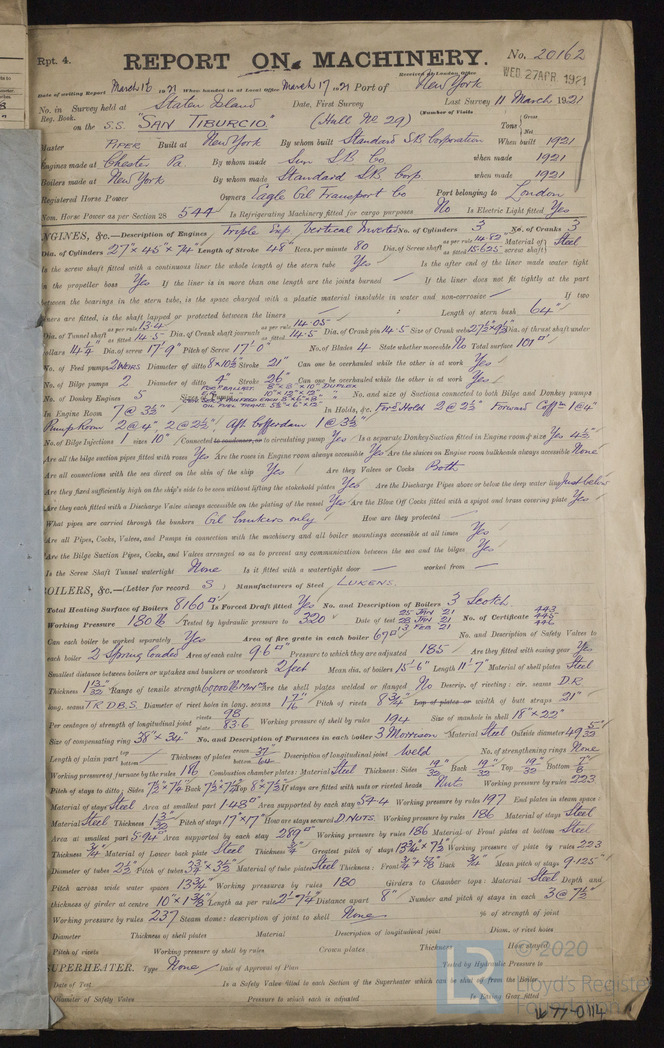 Rpt. 4.
REPORT ON MACHINERY. No. 20162
Received at London Office WED. 27 APR. 1921
Date of writing Report March 16 1921 When handed in at Local Office March 17 1921 Port of New York
No. in Survey held at Staten Island Date, First Survey Last Survey 11 March 1921
Reg. Book. (Number of Visits
on the S.S. "SAN TIBURCIO" (Hull No 29) Tons Gross Net
Master PIPER Built at New York By whom built Standard S.B. Corporation When built 1921
Engines made at Chester Pa. By whom made Sun S.B. Co when made 1921
Boilers made at New York By whom made Standard S.B. Corp when made 1921
Registered Horse Power Owners Eagle Oil Transport Co Port belonging to London
Nom. Horse Power as per Section 28 544 Is Refrigerating Machinery fitted for cargo purposes No Is Electric Light fitted Yes
ENGINES, &c.—Description of Engines Triple Exp. Vertical Inverted No. of Cylinders 3 No. of Cranks 3
Dia. of Cylinders 27" x 45" x 74" Length of Stroke 48" Revs. per minute 80 Dia. of Screw shaft as per rule 14.82" as fitted 15.625" Material of screw shaft Steel
Is the screw shaft fitted with a continuous liner the whole length of the stern tube Yes Is the after end of the liner made water tight
in the propeller boss Yes If the liner is in more than one length are the joints burned — If the liner does not fit tightly at the part
between the bearings in the stern tube, is the space charged with a plastic material insoluble in water and non-corrosive — If two
liners are fitted, is the shaft lapped or protected between the liners — Length of stern bush 64"
Dia. of Tunnel shaft as per rule 13.4 as fitted 14.5 Dia. of Crank shaft journals as per rule 14.05 as fitted 14.5 Dia. of Crank pin 14.5 Size of Crank webs 27½ x 9½ Dia. of thrust shaft under
collars 14¼ Dia. of screw 17'9" Pitch of Screw 17'0" No. of Blades 4 State whether moveable No Total surface 101
No. of Feed pumps 2 Diameter of ditto 8 x 10½ Stroke 21" Can one be overhauled while the other is at work Yes
No. of Bilge pumps 2 Diameter of ditto 4" Stroke 26" Can one be overhauled while the other is at work Yes
No. of Donkey Engines 5 Sizes of Pumps No. and size of Suctions connected to both Bilge and Donkey pumps
OIL FUEL TRANS.
In Engine Room 7 @ 3½" In Holds, &c. For'd Hold 2 @ 2½" Forward Coff'm 1 @ 4"
Pump Room 2 @ 4", 2 @ 2½", Aft Cofferdam 1 @ 3½"
No. of Bilge Injections 1 sizes 10" Connected to condenser, or to circulating pump Yes Is a separate Donkey Suction fitted in Engine room & size Yes 4½"
Are all the bilge suction pipes fitted with roses Yes Are the roses in Engine room always accessible Yes Are the sluices on Engine room bulkheads always accessible None
Are all connections with the sea direct on the skin of the ship Yes Are they Valves or Cocks Both
Are they fixed sufficiently high on the ship's side to be seen without lifting the stokehold plates Yes Are the Discharge Pipes above or below the deep water line Just below
Are they each fitted with a Discharge Valve always accessible on the plating of the vessel Yes Are the Blow Off Cocks fitted with a spigot and brass covering plate Yes
What pipes are carried through the bunkers Oil bunkers only How are they protected —
Are all Pipes, Cocks, Valves, and Pumps in connection with the machinery and all boiler mountings accessible at all times Yes
Are the Bilge Suction Pipes, Cocks, and Valves arranged so as to prevent any communication between the sea and the bilges Yes
Is the Screw Shaft Tunnel watertight None Is it fitted with a watertight door — worked from —
BOILERS, &c.—(Letter for record S) Manufacturers of Steel LUKENS.
Total Heating Surface of Boilers 8160 Is Forced Draft fitted Yes No. and Description of Boilers 3 Scotch.
Working Pressure 180 lb Tested by hydraulic pressure to 320 Date of test 25 JAN 21 28 JAN 21 3 FEB 21 No. of Certificate 443 445 446
Can each boiler be worked separately Yes Area of fire grate in each boiler 67 No. and Description of Safety Valves to
each boiler 2 Spring loaded Area of each valve 9.6 Pressure to which they are adjusted 185 Are they fitted with easing gear Yes
Smallest distance between boilers or uptakes and bunkers or woodwork 2 feet Mean dia. of boilers 15'-6" Length 11'-7" Material of shell plates Steel
Thickness 1 13/32 Range of tensile strength 60000 lb Min Are the shell plates welded or flanged No Descrip. of riveting: cir. seams D.R.
long. seams T.R.D.B.S. Diameter of rivet holes in long. seams 1 7/16 Pitch of rivets 8¾" Lap of plates or width of butt straps 21"
Per centages of strength of longitudinal joint rivets 98 plate 83.6 Working pressure of shell by rules 194 Size of manhole in shell 18" x 22"
Size of compensating ring 38" x 34" No. and Description of Furnaces in each boiler 3 Morrison Material Steel Outside diameter 49 5/32"
Length of plain part top bottom Thickness of plates crown 37/64 bottom Description of longitudinal joint Weld No. of strengthening rings None
Working pressure of furnace by the rules 186 Combustion chamber plates: Material Steel Thickness: Sides 19/32 Back 19/32 Top 19/32 Bottom 7/8
Pitch of stays to ditto: Sides 7½ x 7¼ Back 7½ x 7½ Top 8 x 7½ If stays are fitted with nuts or riveted heads Nuts Working pressure by rules 223
Material of stays Steel Area at smallest part 1.48 Area supported by each stay 54.4 Working pressure by rules 197 End plates in steam space:
Material Steel Thickness 1 3/32 Pitch of stays 17" x 17" How are stays secured D.NUTS. Working pressure by rules 186 Material of stays Steel
Area at smallest part 5.94 Area supported by each stay 289 Working pressure by rules 186 Material of Front plates at bottom Steel
Thickness ¾ Material of Lower back plate Steel Thickness ¾" Greatest pitch of stays 13¾" x 7½ Working pressure of plate by rules 223
Diameter of tubes 2½ Pitch of tubes 3¾ x 3½ Material of tube plates Steel Thickness: Front ¾ + ⅞ Back ¾ Mean pitch of stays 9.125"
Pitch across wide water spaces 13¾" Working pressures by rules 180 Girders to Chamber tops: Material Steel Depth and
thickness of girder at centre 10" x 1⅜" Length as per rule 2'-7¼ Distance apart 8" Number and pitch of stays in each 3 @ 7½"
Working pressure by rules 237 Steam dome: description of joint to shell None % of strength of joint
Diameter Thickness of shell plates Material Description of longitudinal joint Diam. of rivet holes
Pitch of rivets Working pressure of shell by rules Crown plates Thickness How stayed
SUPERHEATER. Type None Date of Approval of Plan Tested by Hydraulic Pressure to
Date of Test Is a Safety Valve fitted to each Section of the Superheater which can be shut off from the Boiler
Diameter of Safety Valve Pressure to which each is adjusted Is Easing Gear fitted
© 2020
Lloyd's Register
Foundation
LR
W77-0114